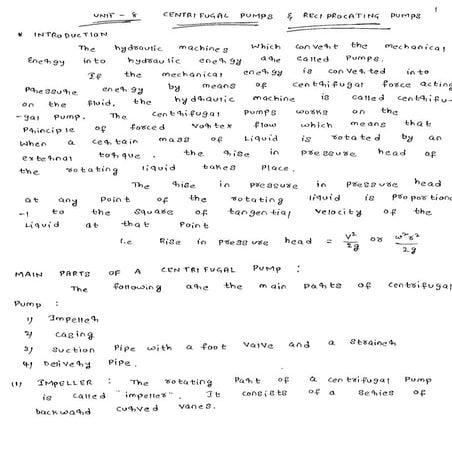 1
UNIT - 8 CENTRIFUGAL PUMPS & RECIPROCATING PUMPS
* INTRODUCTION
The hydraulic machines which convert the mechanical
Energy into hydraulic energy are called Pumps.
If the mechanical energy is converted into
Pressure energy by means of centrifugal force acting
on the fluid, the hydraulic machine is called centrifu-
-gal Pump. The centrifugal Pumps works on the
Principle of forced vortex flow which means that
when a certain mass of Liquid is rotated by an
external torque, the rise in pressure head of
the rotating liquid takes Place.
The rise in Pressure in Pressure head
at any Point of the rotating liquid is Proportiona
-l to the square of tangential velocity of the
Liquid at that Point
i.e Rise in Pressure head = V²/2g or ω²r²/2g
MAIN PARTS OF A CENTRIFUGAL PUMP :
The following are the main parts of centrifugal
Pump :
1) Impeller
2) casing
3) suction Pipe with a foot valve and a strainer
4) Delivery Pipe.
(1) IMPELLER : The rotating Part of a centrifugal Pump
is called "impeller". It consists of a series of
backward curved vanes.